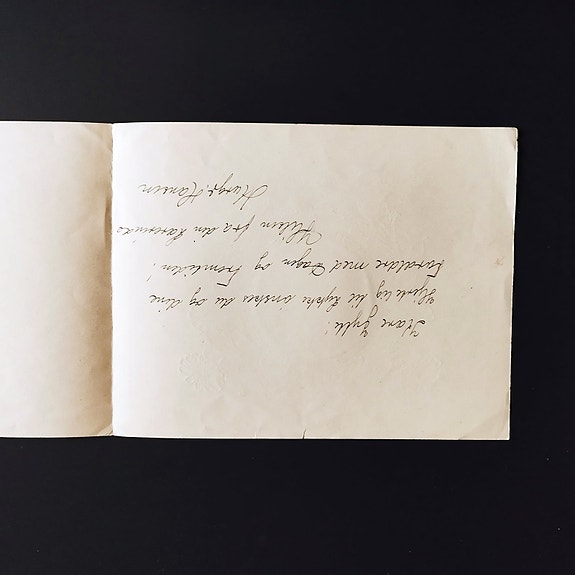 Kære Jytte!
Hjerteligt til lykke ønskes du og dine
Forældre med Dagen og Fremtiden!
Hilsen fra din Lærerinde
Hansen